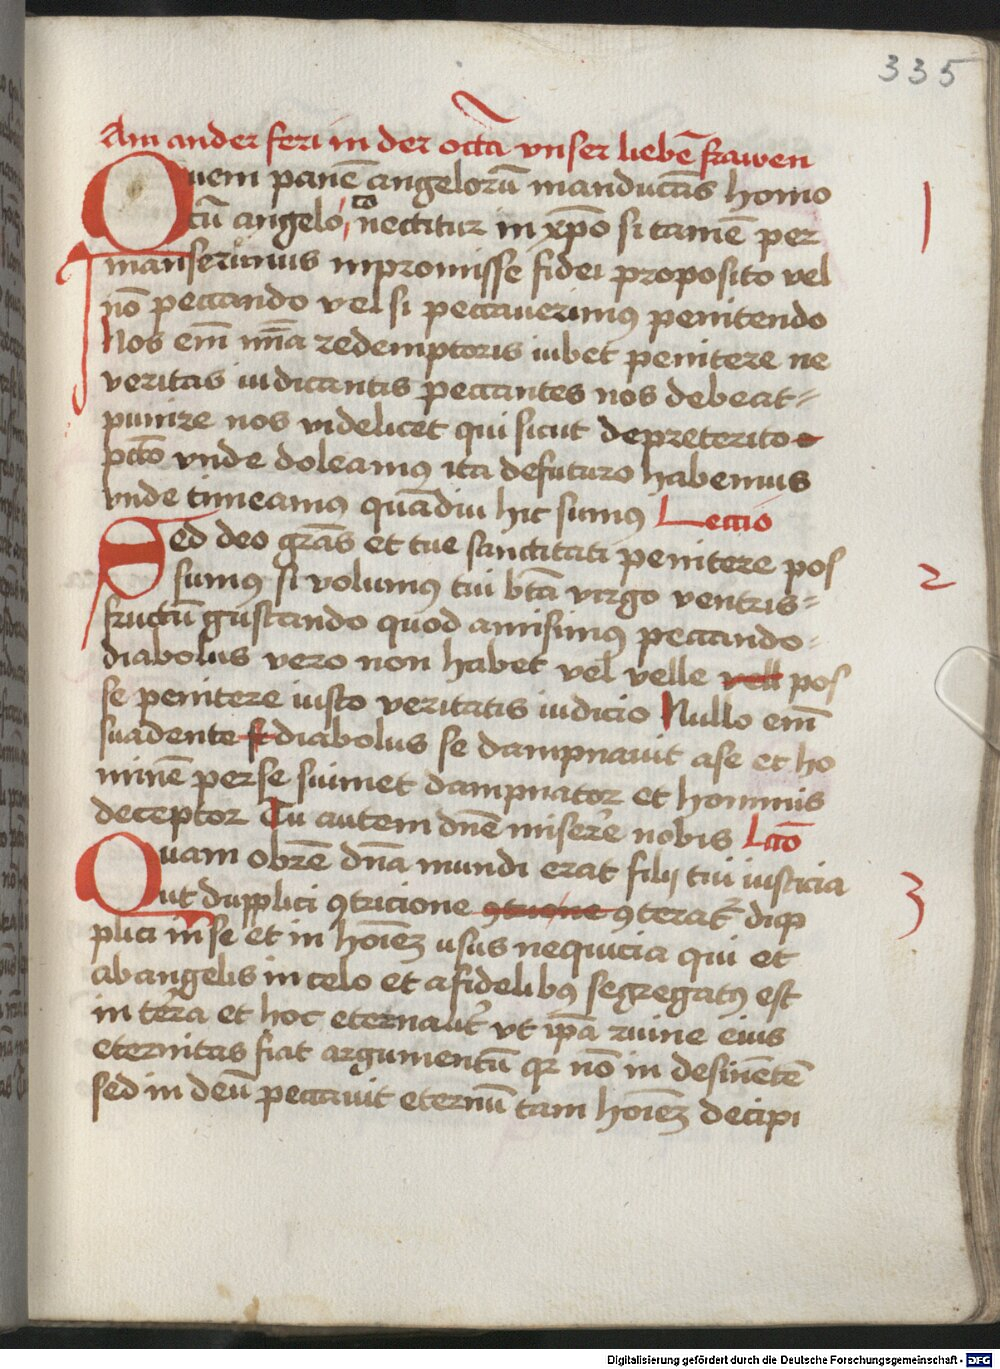 335
Am ander feri in der octā vnser liebē frawen
Quem panē angelorū manducās homo
1
cū angelo ꝯnectitur in xp̄o si tamē per
manserimus inpromisse fidei proposito vel
nō peccando vel si peccauerimꝯ penitendo
Nos em̄ redemptoris iubet penitere ne
veritas iudicantis peccantes nos debeat
punire nos videlicet qui sicut depreterito
pctō vnde doleamꝯ ita defuturo habemus
vnde timeamꝯ quādiu hic sumꝯ Leccio
Sed deo grās et tue sanctitati penitere pos
sumꝯ si volumꝯ tui btā virgo ventris
2
fructū gustando quod amisimꝯ peccando
diabolus vero non habet vel velle vell pos
se penitere iusto veritatis iudicio Nullo em̄
suadente diabolus se dampnauit ase et ho
minē per se suimet dampnator et hominis
deceptor Tu autem dn̄e miserē nobis Lcō
Quam obrē dn̄a mundi erat filij tui iusticia
3
ut dupplici ꝯtricione ꝯterat᷑ dup
plici in se et in hoīeꝫ usus nequicia qui et
ab angelis in celo et a fidelibꝯ segregatꝯ est
in terra et hoc eternalit᷑ vt ip̄a ruine eius
eternitas fiat argumentū qꝛ nō in desinētē
sed in deū peccauit eternū tam hoīeꝫ decipi
Digitalisierung gefördert durch die Deutsche Forschungsgemeinschaft - DFG